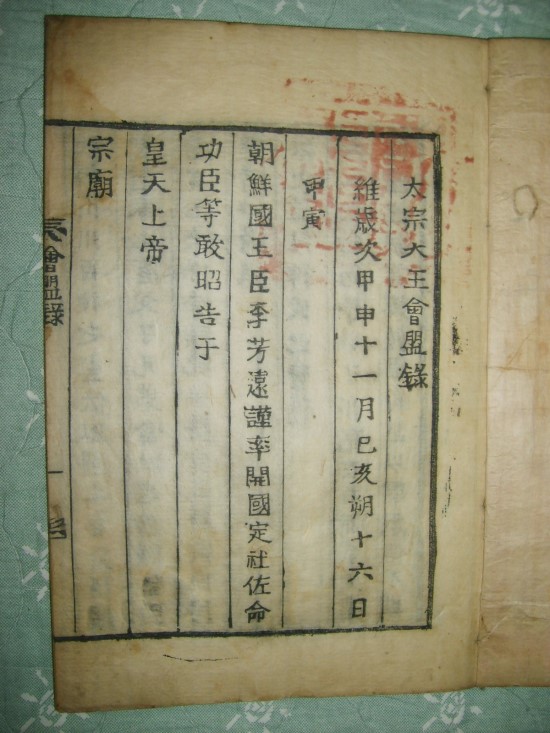 太宗大王會盟錄
維歲次甲申十一月己亥朔十六日
甲寅
朝鮮國王臣李芳遠謹率開國定社佐命
功臣等敢昭告于
皇天上帝
宗廟
會盟錄
一